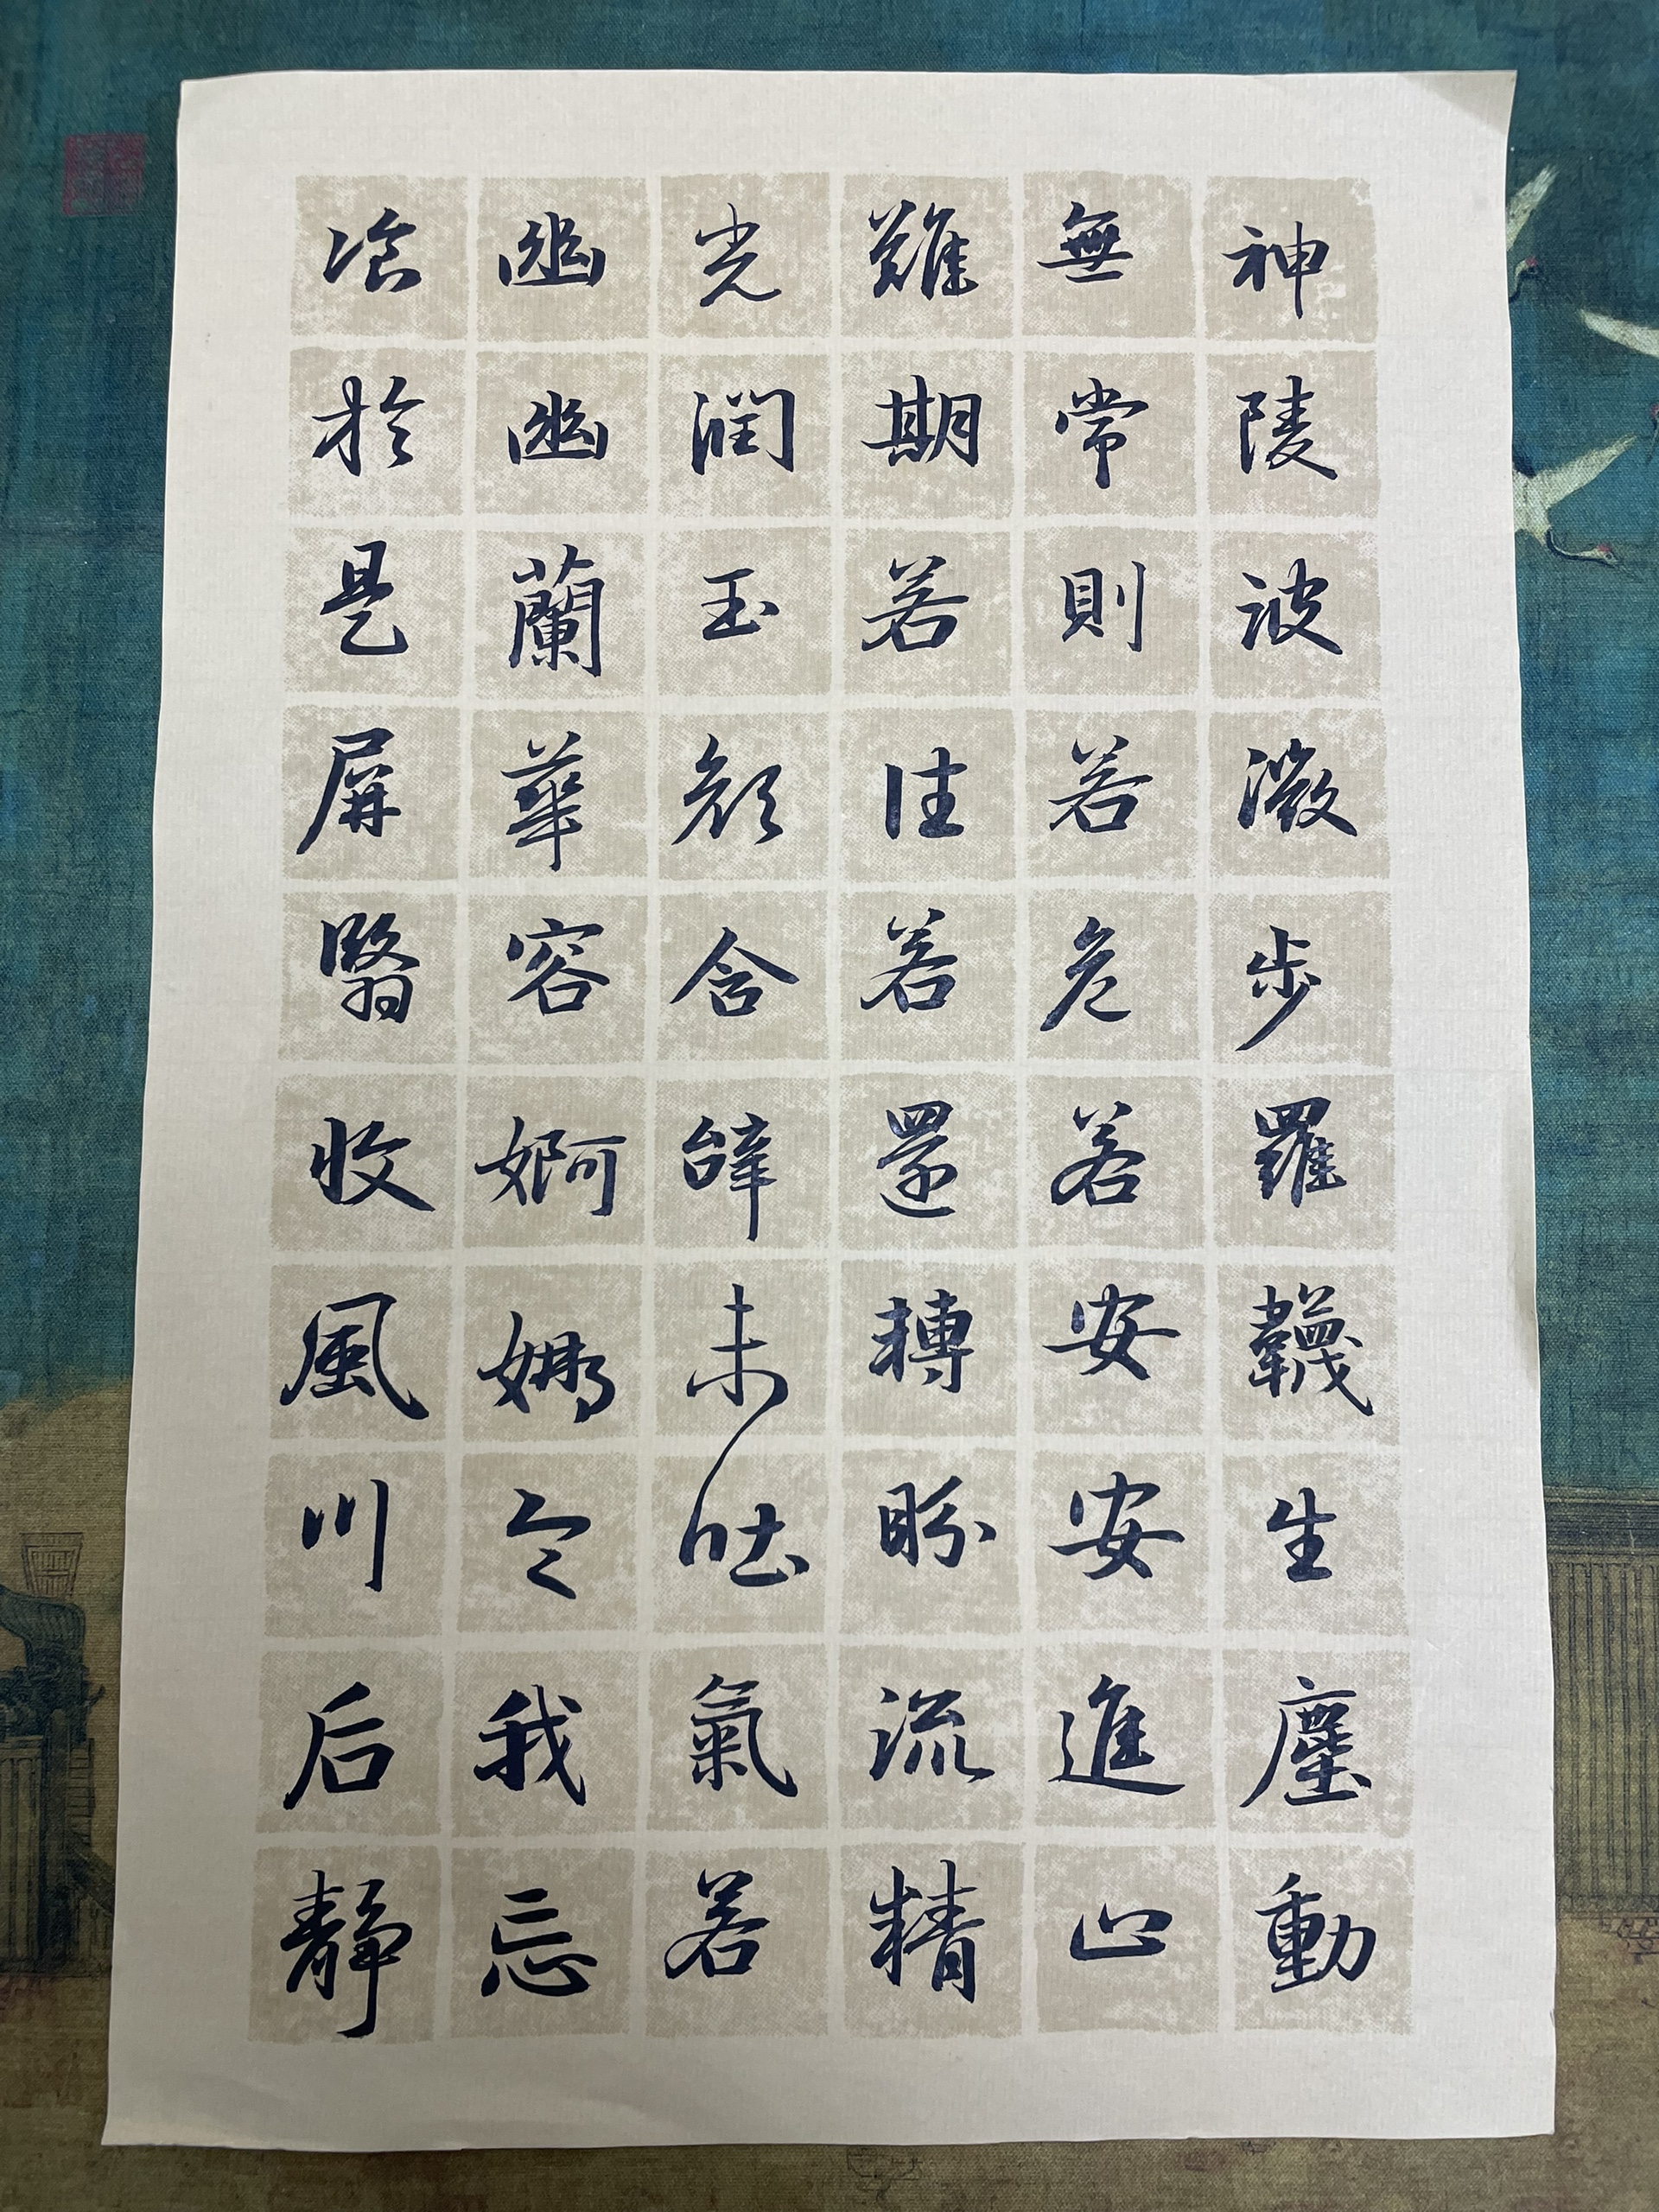 神陵波微步羅韤生塵動
無常則若危若安安進止
難期若往若還轉眄流精
光潤玉顏含辭未吐氣若
幽幽蘭華容婀娜令我忘
飡於是屏翳收風川后靜